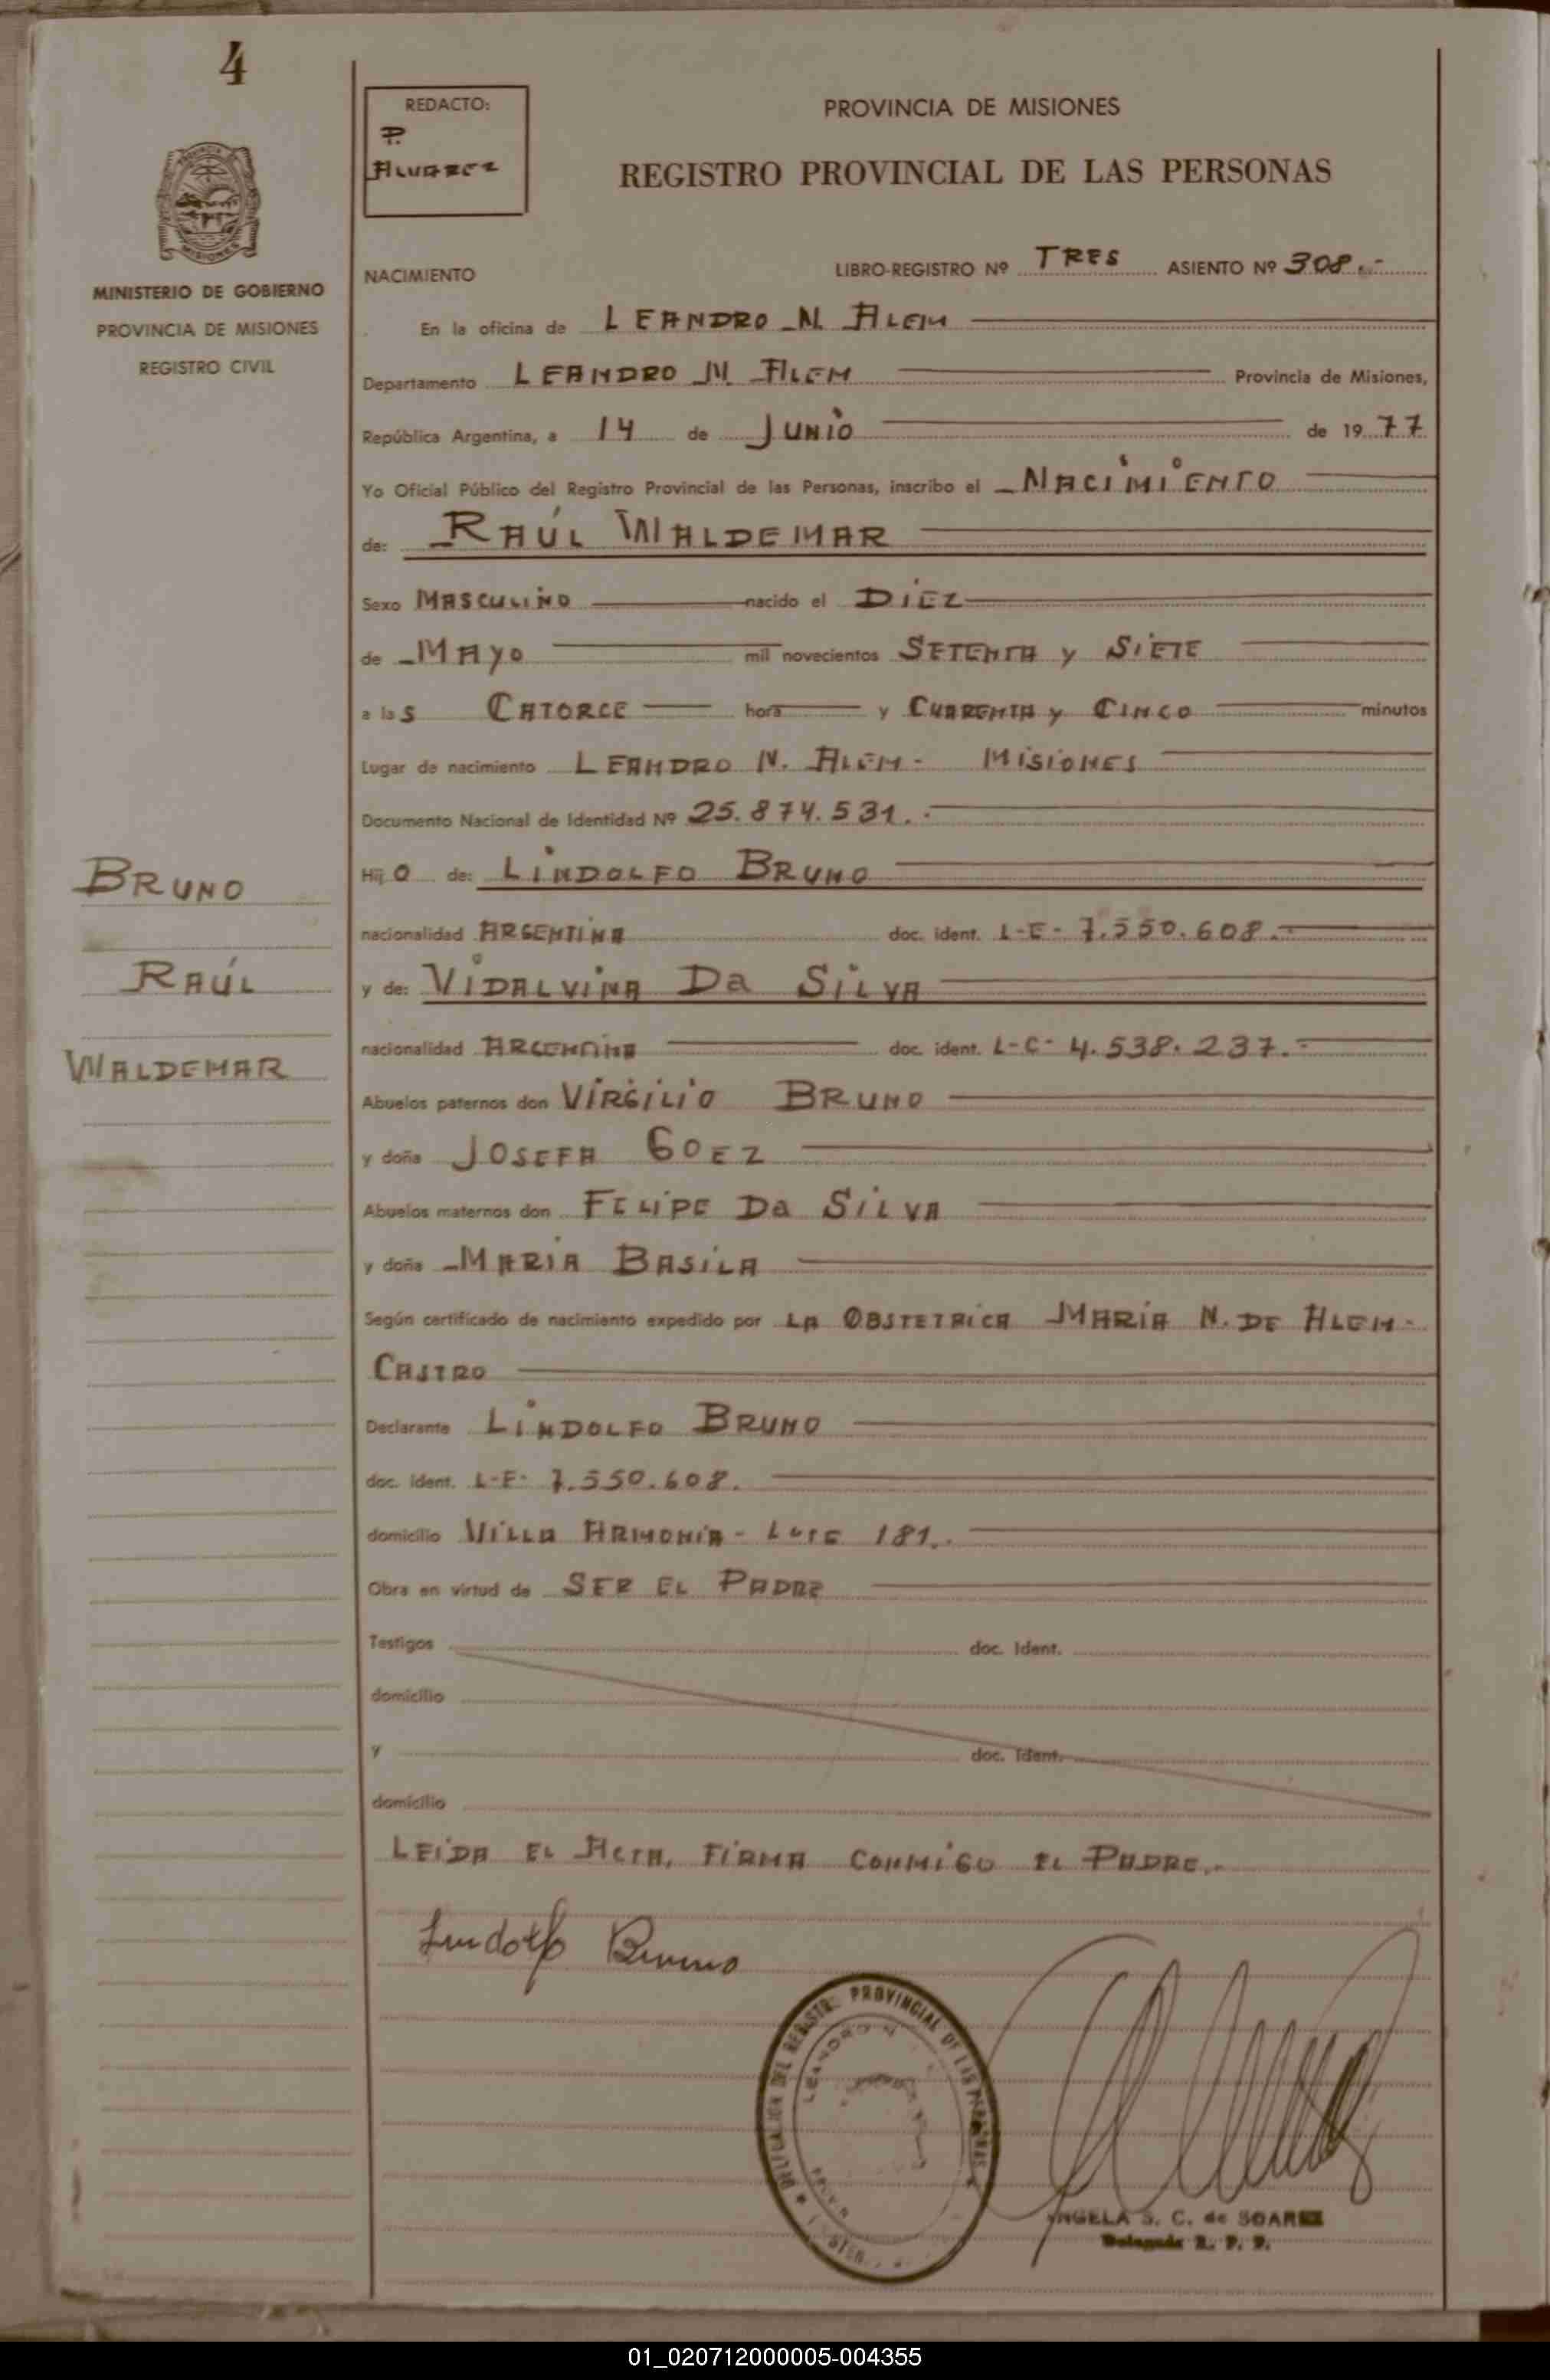 4
REDACTO:
P.
ALVAREZ
PROVINCIA DE MISIONES
REGISTRO PROVINCIAL DE LAS PERSONAS
MINISTERIO DE GOBIERNO
PROVINCIA DE MISIONES
REGISTRO CIVIL
NACIMIENTO LIBRO-REGISTRO Nº TRES ASIENTO Nº 308.-
En la oficina de LEANDRO N. ALEM
Departamento LEANDRO N. ALEM Provincia de Misiones,
República Argentina, a 14 de JUNIO de 1977
Yo Oficial Público del Registro Provincial de las Personas, inscribo el NACIMIENTO
de: RAÚL WALDEMAR
Sexo MASCULINO nacido el DIEZ
de MAYO mil novecientos SETENTA y SIETE
a las CATORCE hora y CUARENTA y CINCO minutos
Lugar de nacimiento LEANDRO N. ALEM - MISIONES
Documento Nacional de Identidad Nº 25.874.531.-
Hijo de: LINDOLFO BRUNO
nacionalidad ARGENTINA doc. ident. L-E- 7.550.608.-
y de: VIDALVINA Da SILVA
nacionalidad ARGENTINA doc. ident. L-C- 4.538.237.-
Abuelos paternos don VIRGILIO BRUNO
y doña JOSEFA GOEZ
Abuelos maternos don FELIPE Da SILVA
y doña MARIA BASILA
Según certificado de nacimiento expedido por LA OBSTETRICA MARÍA N. DE ALEM-
CASTRO
Declarante LINDOLFO BRUNO
doc. ident. L-E- 7.550.608.
domicilio VILLA ARMONÍA - LOTE 181.
Obra en virtud de SER EL PADRE
Testigos doc. Ident.
domicilio
y doc. Ident.
domicilio
LEIDA EL ACTA, FIRMA CONMIGO EL PADRE.-
BRUNO
RAÚL
WALDEMAR
Lindolfo Bruno
DELEGACION DEL REGISTRO PROVINCIAL DE LAS PERSONAS
LEANDRO N
ANGELA S. C. de SOAREZ
Delegada R. P. P.
01_020712000005-004355